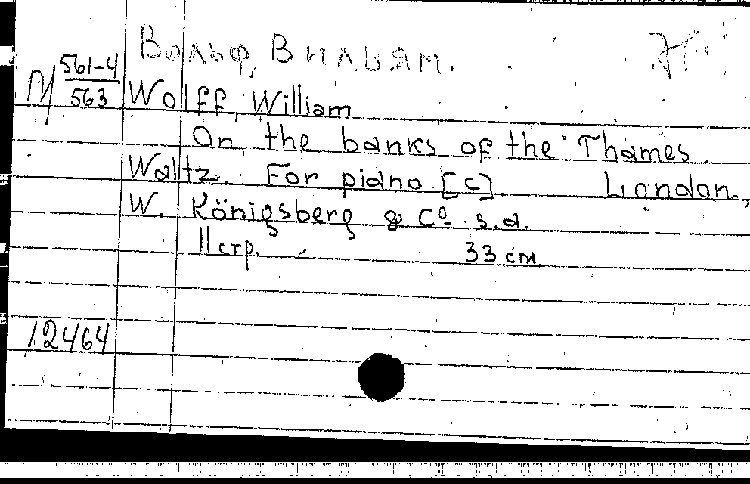 Вольф, Вильям.
И 561-4
563
Wolff William
On the banks of the Thames.
Waltz. For piano [C] London,
W. Königsberg & Cº s.d.
11 стр. 33 см
12464